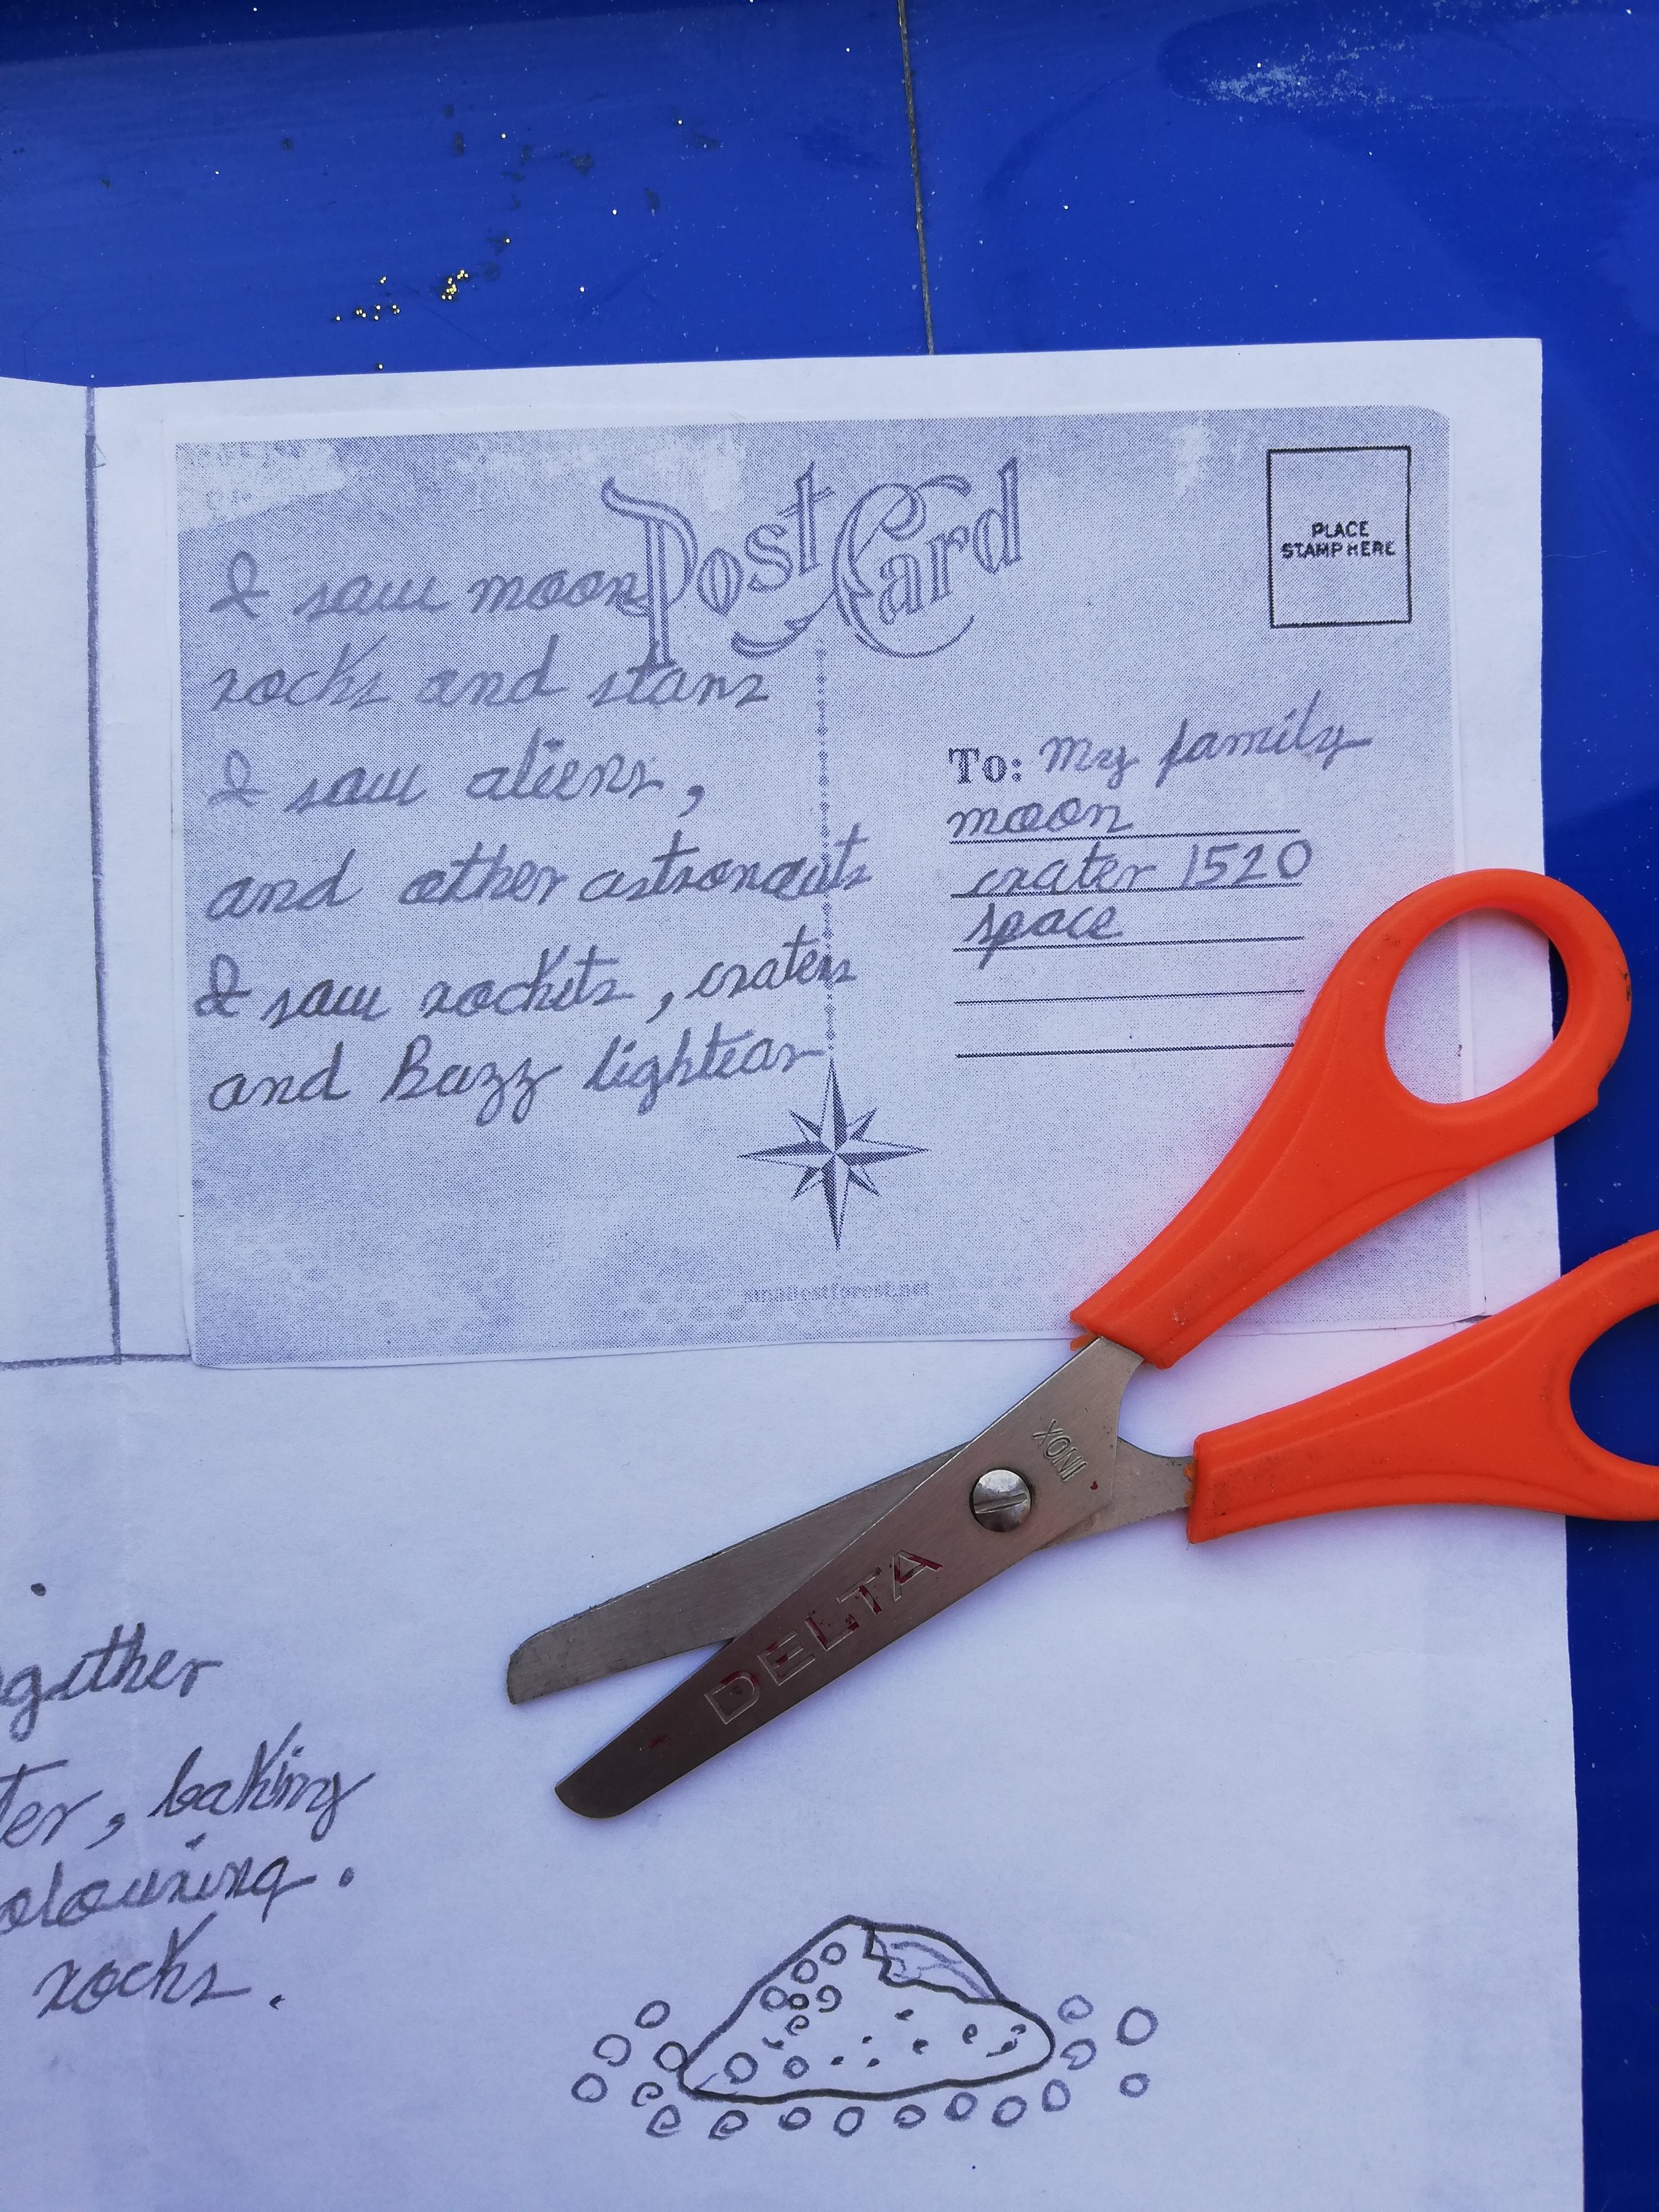 Post Card
PLACE
STAMP HERE
I saw moon
rocks and stars
I saw aliens,
and other astronauts
I saw rockets, craters
and Buzz lightear
To: My family
moon
crater 1520
space
smallestforest.net
INOX
DELTA
ogether
ter, baking
olouring.
rocks.